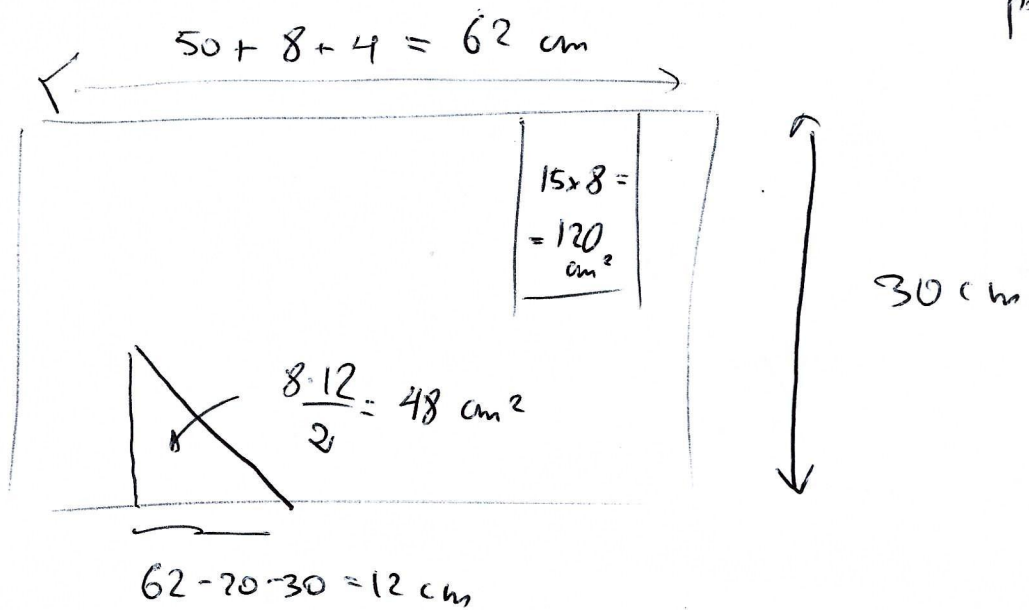 50 + 8 + 4 = 62 cm
15x8 =
= 120
cm²
30 cm
8·12/2 = 48 cm²
62-20-30 = 12 cm